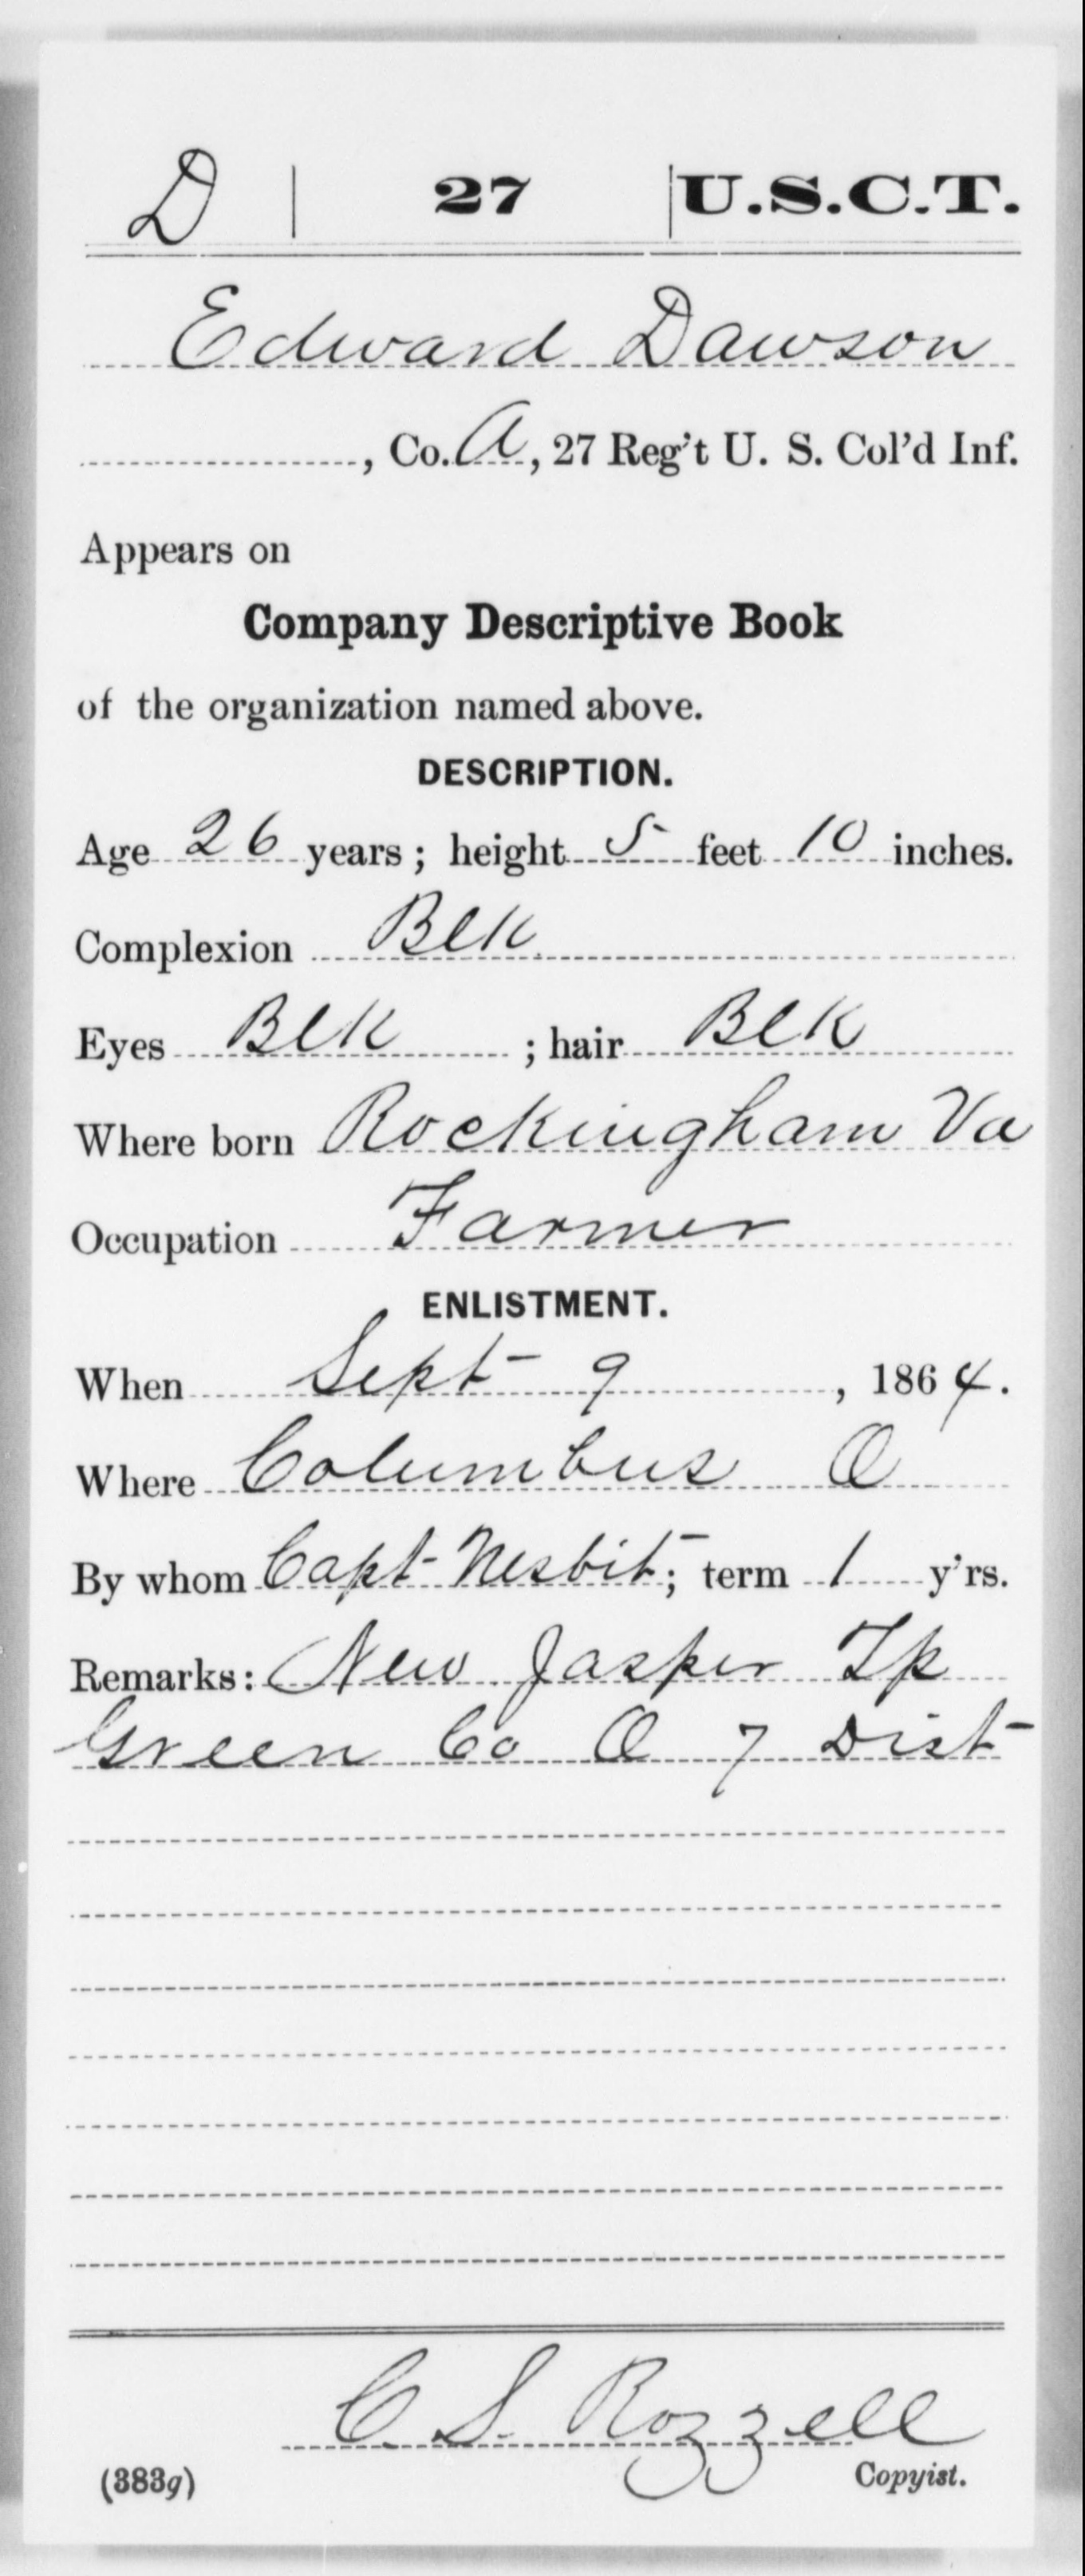 D | 27 | U.S.C.T.
Edward Dawson
, Co. A, 27 Reg't U. S. Col'd Inf.
Appears on
Company Descriptive Book
of the organization named above.
DESCRIPTION.
Age 26 years; height 5 feet 10 inches.
Complexion Blk.
Eyes Blk ; hair Blk
Where born Rockingham Va
Occupation Farmer
ENLISTMENT.
When Sept 9, 1864.
Where Columbus O
By whom Capt Nesbit; term 1 y'rs.
Remarks: New Jasper Tp
Green Co O 7 Dist
C. S. Rozzell
(383g) Copyist.